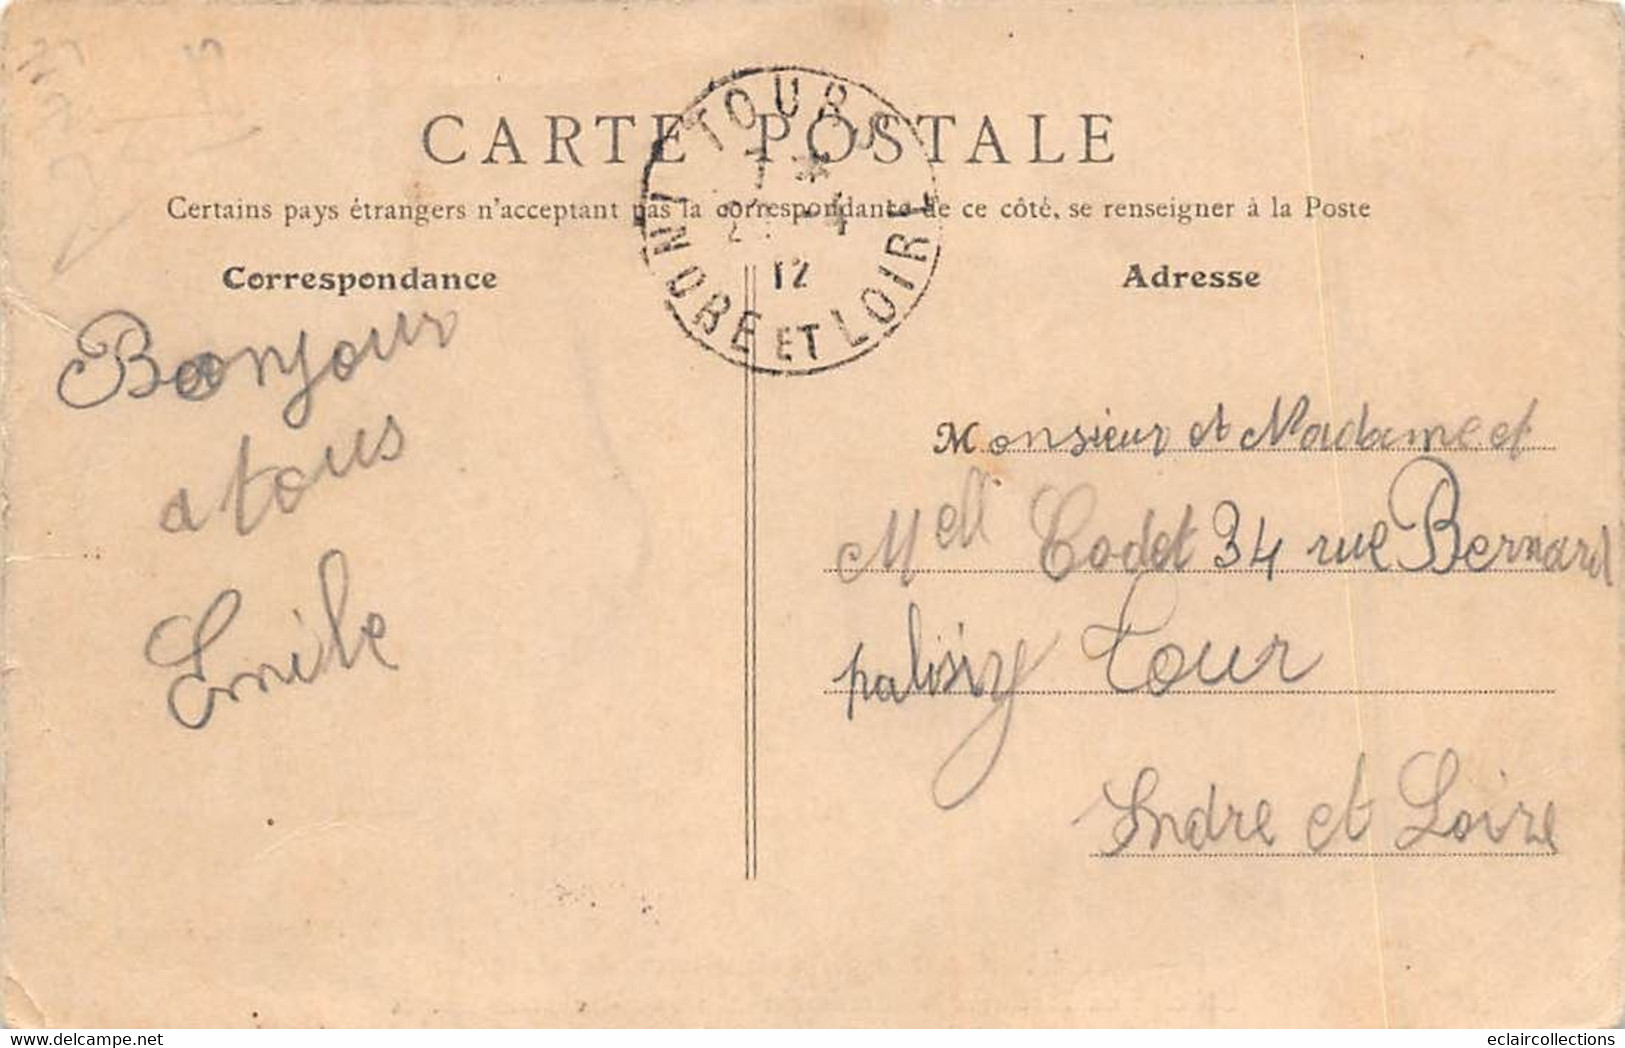 CARTE POSTALE
Certains pays étrangers n'acceptant pas la correspondance de ce côté, se renseigner à la Poste
Correspondance
Adresse
TOURS
12
INDRE ET LOIRE
Bonjour
a tous
Emile
Monsieur et Madame et
Mell Codet 34 rue Bernard
palissy Tour
Indre et Loire
eclaircollections